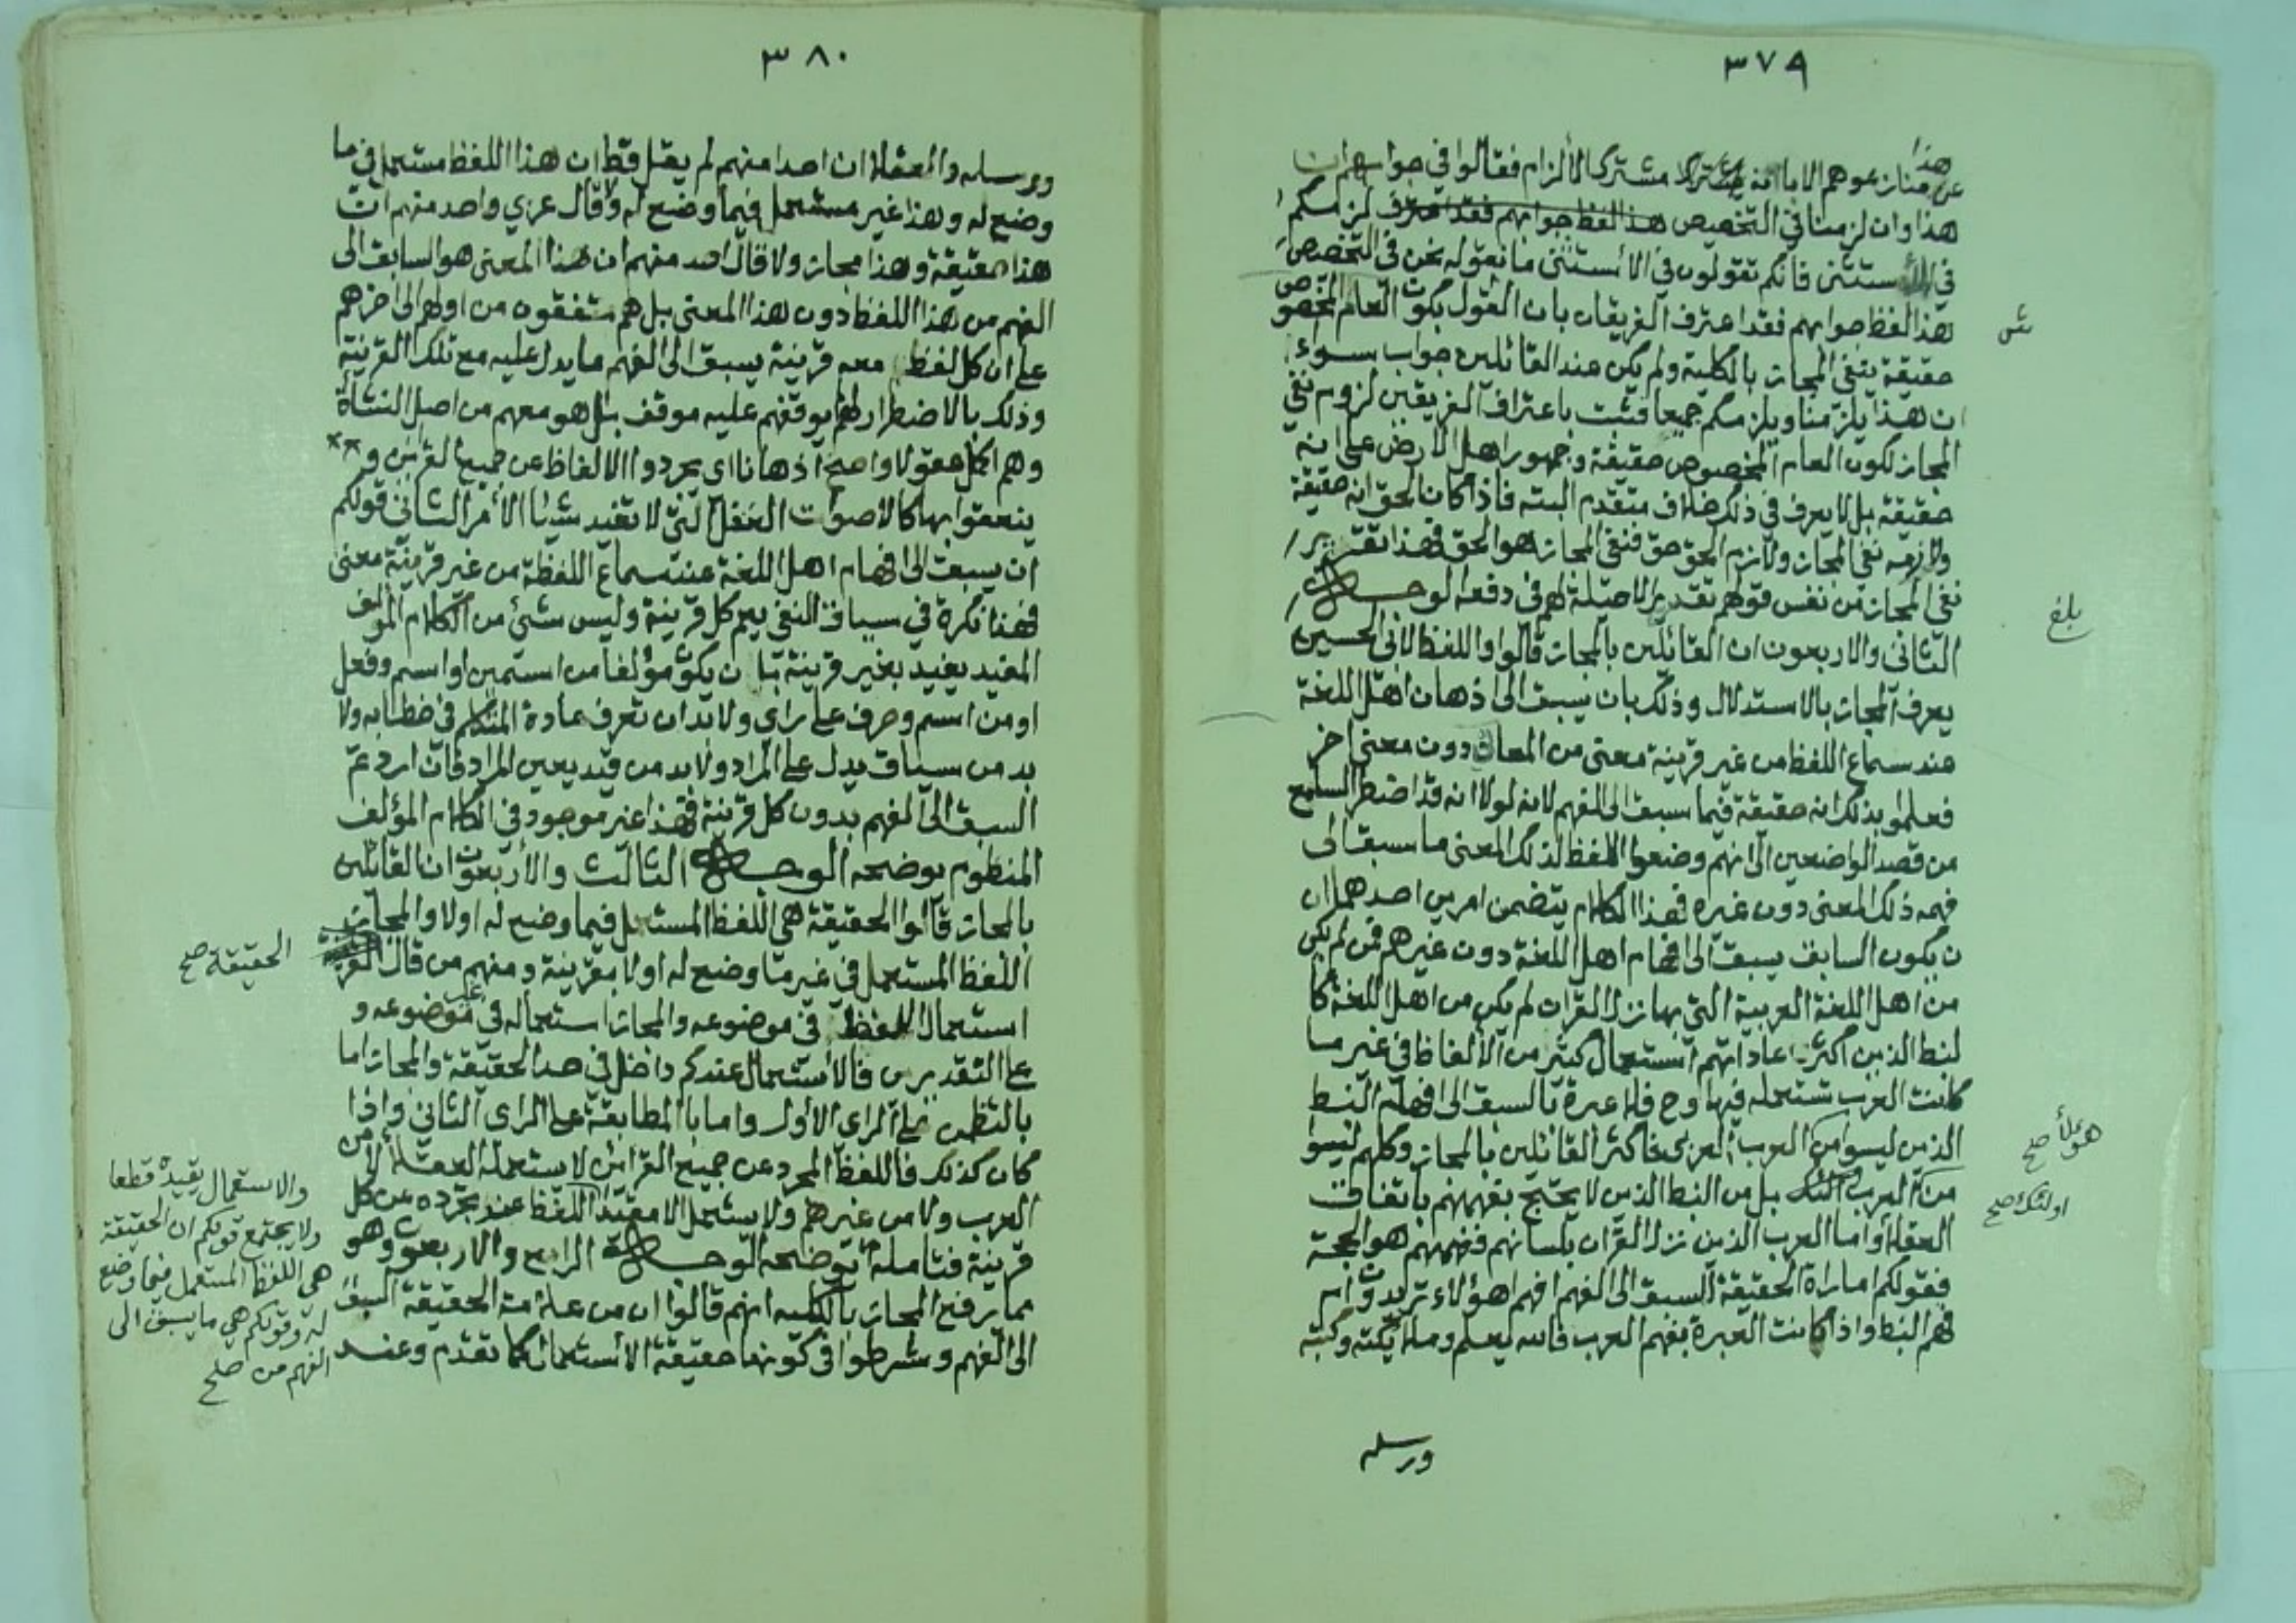 ٣٧٩
هذا
عن منازعوهم الا بانه مشترك الألزام فقالوا في جوابهم ان
هذا وان لزمنا في التخصيص هذا لفظ جوابهم فقد اعترف لزمكم
في الأستثنى فانكم تقولون في الاستثنى ما نقوله نحن في التخصيص
هذا لفظ جوابهم فقد اعترف الفريقان بان القول بكون العام المخصوص
حقيقة ينفي المجاز بالكلية ولم يكن عند القائلين جواب سوء
ان هذا يلزمنا ويلزمكم جميعا فثبت باعتراف الفريقين لزوم نفي
المجاز لكون العام المخصوص حقيقة وجمهور اهل الارض على انه
حقيقة بل لا يعرف في ذلك خلاف متقدم البته فاذا كان الحق انه حقيقة
ولازمه نفي المجاز ولازم الحق حق فنفي المجاز هو الحق فهذا تقرير
نفي المجاز من نفس قولهم تقديرا لا حيلة لهم في دفعه الوجه
الثاني والاربعون ان القائلين بالمجاز قالوا واللفظ لابي الحسين
يعرف المجاز بالاستدلال وذلك بان يسبق الى اذهان اهل اللغة
عند سماع اللفظ من غير قرينة معنى من المعاني دون معنى اخر
فعلموا بذلك انه حقيقة فيما سبق الى الفهم لانه لولا انه قد اضطر السامع
من قصد الواضعين الى انهم وضعوا اللفظ لذلك المعنى ما سبق الى
فهمه ذلك المعنى دون غيره فهذا الكلام يتضمن امرين احدهما ان
ن يكون السابق يسبق الى افهام اهل اللغة دون غيرهم فمن لم يكن
من اهل اللغة العربية التي بها نزل القرات لم يكن من اهل اللغة كا
لنبط الذين اكثر عاداتهم استعمال كثير من الألفاظ في غير ما
كانت العرب تستعمله فيها وح فلا عبرة بالسبق الى افهام النبط
الذين ليسوا من العرب العربى فاكثر القائلين بالمجاز وكلهم ليسوا
من العرب بل من النبط الذين لا يحتج بفهمهم باتفاق
العقلا واما العرب الذين نزل القران بلسانهم ففهمهم هو الحجة
فقولكم امارة الحقيقة السبق الى الفهم افهم اهؤلاء تريدون ام
فهم النبط واذا كانت العبرة بفهم العرب فالله يعلم وملايكته وكتبه
ورسله
ش
بلغ
هؤلأ صح
اولئك صح
٣٨٠
ورسله والعقلا ان احدا منهم لم يقل قط ان هذا اللفظ مستعمل في ما
وضع له وهذا غير مستعمل فيما وضع له ولا قال عربي واحد منهم ان
هذا حقيقة وهذا مجاز ولا قال احد منهم ان هذا المعنى هو السابق الى
الفهم من هذا اللفظ دون هذا المعنى بل هم متفقون من اولهم الى اخرهم
على ان كل لفظ معه قرينة يسبق الى الفهم ما يدل عليه مع تلك القرينة
وذلك بالاضطرار لهم يوقفهم عليه موقف بل هو معهم من اصل النشأة
وهم اكمل عقولا واصح اذهانا اى يجردوا الالفاظ عن جميع القرائن و
ينعقوا بها كالأصوات الغفل التي لا تفيد شيا الأمر الثاني قولكم
ان يسبق الى افهام اهل اللغة عند سماع اللفظة من غير قرينة معنى
فهذا نكرة في سياق النفي يعم كل قرينة وليس شئ من الكلام المؤلف
المفيد يفيد بغير قرينة بل ن يكون مؤلفا من اسمين او اسم وفعل
او من اسم وحرف على راي ولا بد ان تعرف عادة المتكلم في خطابه ولا
بد من سياق يدل على المراد ولا بد من قيد يعين المراد فان اردتم
السبق الى الفهم بدون كل قرينة فهذا غير موجود في الكلام المؤلف
المنظوم يوضحه الوجه الثالث والأربعون ان القائلين
بالمجاز قالوا الحقيقة هي اللفظ المستعمل فيما وضع له اولا والمجاز
اللفظ المستعمل في غير ما وضع له اولا بقرينة ومنهم من قال
استعمال اللفظ في موضوعه والمجاز استعماله في غير موضوعه و
على التقديرين فالأستعمال عندكم داخل في حد الحقيقة والمجاز اما
بالتظمن على الراي الأول واما با المطابقة على الراى الثاني واذا
كان كذلك فاللفظ المجرد عن جميع القرائن لا يستعمله العقلا لا من
العرب ولا من غيرهم ولا يستعمل الا مقيدا اللفظ عند تجرده عن كل
قرينة فتامله يوضحه الوجه الرابع والاربعون وهو
مما يرفع المجاز بالكليه انهم قالوا ان من علامة الحقيقة السبق
الى الفهم وشرطوا في كونها حقيقة الأستعمال كما تقدم وعند
الحقيقة صح
والاستعمال يقيده قطعا
ولا يجتمع قولكم ان الحقيقة
هي اللفظ المستعمل فيما وضع
له وقولكم هي ما يسبق الى
الفهم من صح